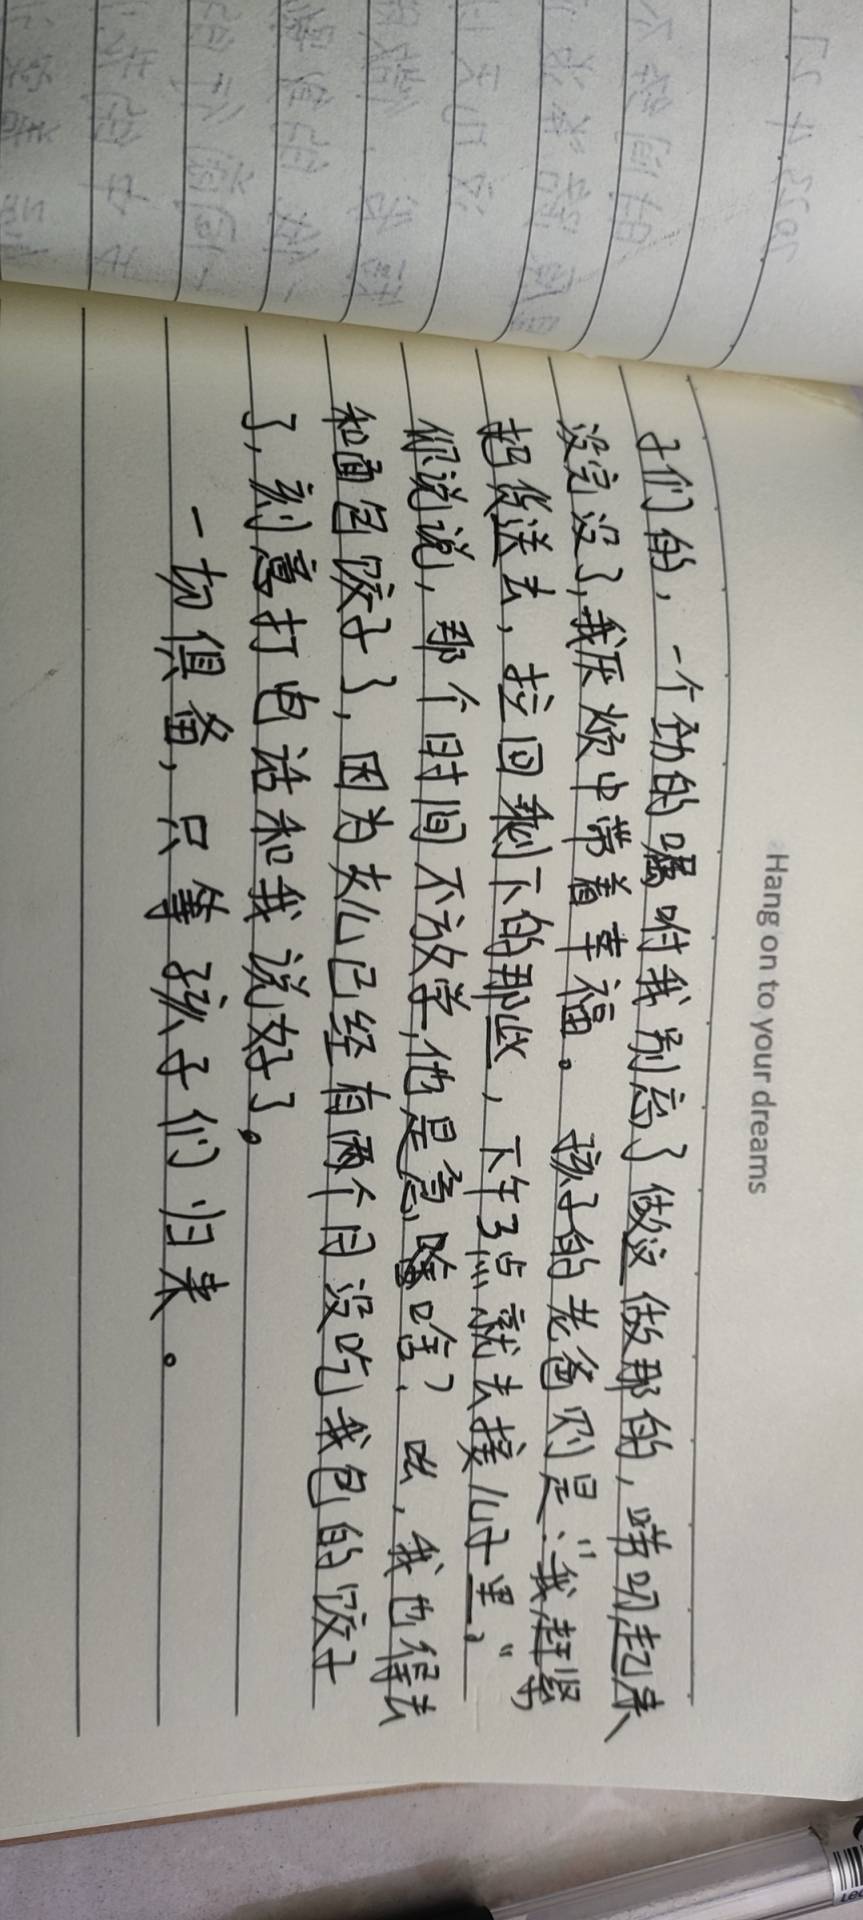 Hang on to your dreams
子们的，一个劲的嘱咐我别忘了做这做那的，唠叨起来、
没完没了，我厌烦中带着幸福。孩子的老爸则是："我赶紧
把货送去，拉回剩下的那些，下午3点就去接儿子里。"
你说说，那个时间不放学，他是急啥啥？呲，我也得去
和面包饺子了，因为大儿已经有两个月没吃我包的饺子
了，刻意打电话和我说好了。
一切俱备，只等孩子们归来。